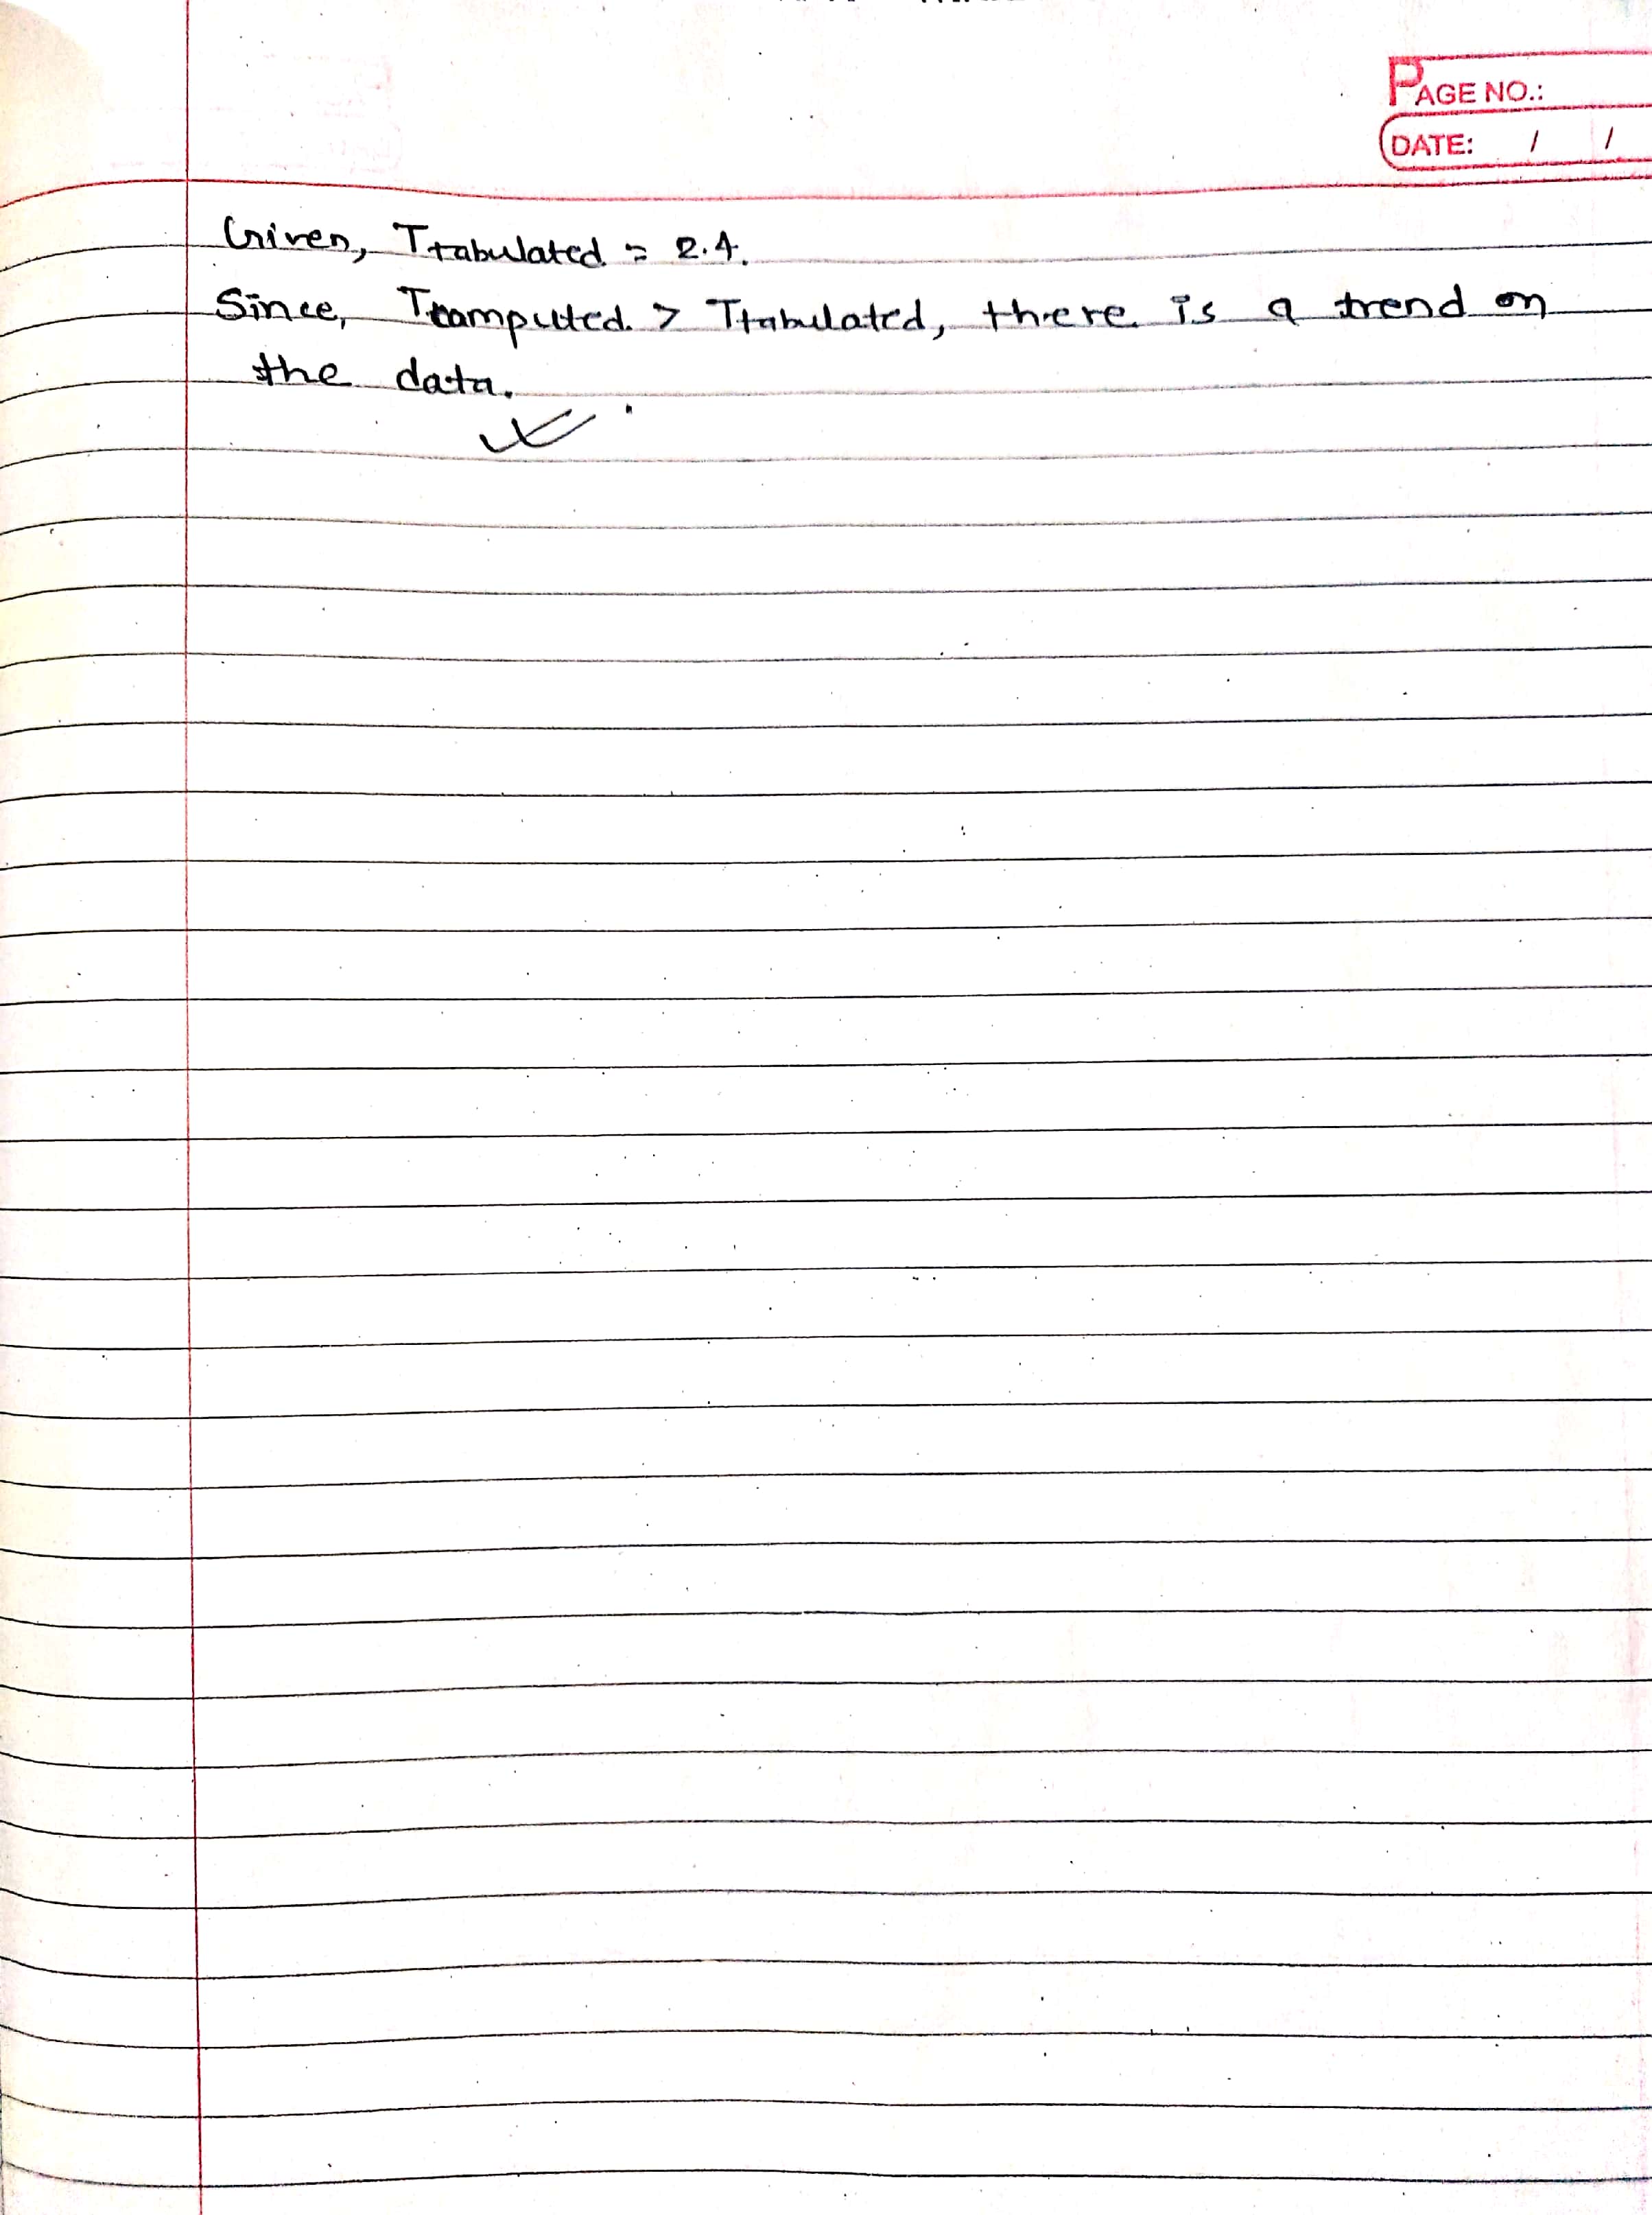 PAGE NO.:
DATE: / /
Given, Ttabulated = 2.4.
Since, Tcomputed > Ttabulated, there is a trend on
the data.